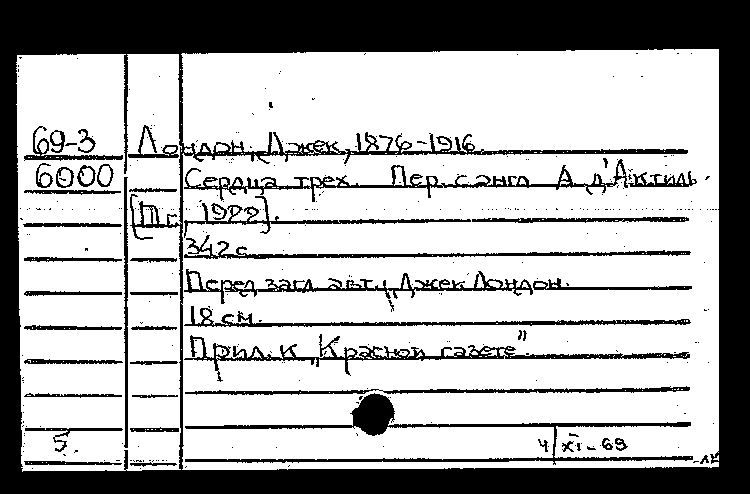 69-3 Лондон, Джек, 1876-1916.
6000 Сердца трех. Пер. с англ А д'Актиль.
[Пг., 1922].
342 с
Перед загл. авт.: Джек Лондон.
18 см.
Прил. к „Красной газете”.
5. 4/XI-69